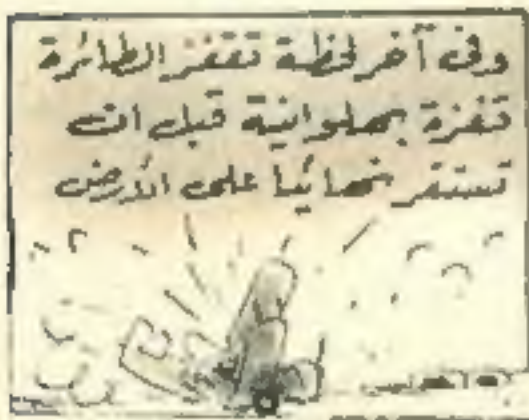 وفى آخر لحظة تقفز الطائرة
قفزة بهلوانية قبل ان
تستقر نهائيا على الأرض